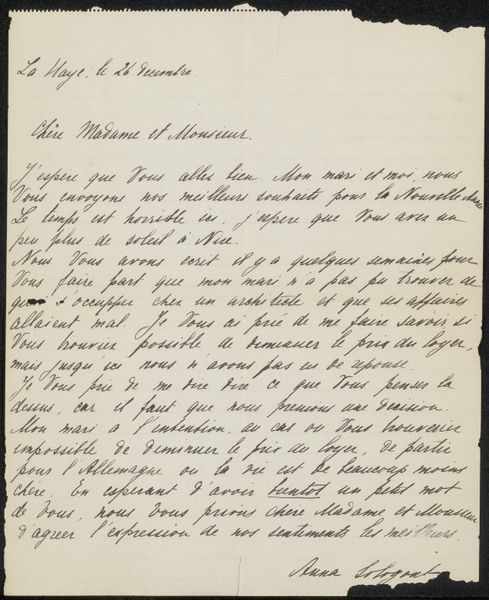 La Haye, le 26 decembre
Chère Madame et Monsieur.
J'espere que Vous alles bien. Mon mari et moi, nous
Vous envoyons nos meilleurs souhaits pour la Nouvelle Anne
Le temps est horrible ici, j'espere que Vous aves un
peu plus de soleil à Nice.
Nous Vous avons ecrit il y a quelques semaines pour
Vous faire part que mon mari n'a pas pu trouver de
s'occupper chez un architecte et que ses affaires
allaient mal. Je Vous ai prié de me faire savoir si
Vous trouvies possible de diminuer le prix du loyer,
mais jusqu'ici nous n'avons pas eu de reponse.
Je Vous prie de me dire ce que Vous penses la
dessus, car il faut que nous prenions une decision.
Mon mari a l'intention, au cas ou Vous trouveries
impossible de diminuer le prix du loyer, de partir
pour l'Allemagne ou la vie est de beaucoup moins
chère. En esperant d'avoir bientot un petit mot
de Vous, nous Vous prions chère Madame et Monsieur
d'agreer l'expression de nos sentiments les meilleurs.
Anna